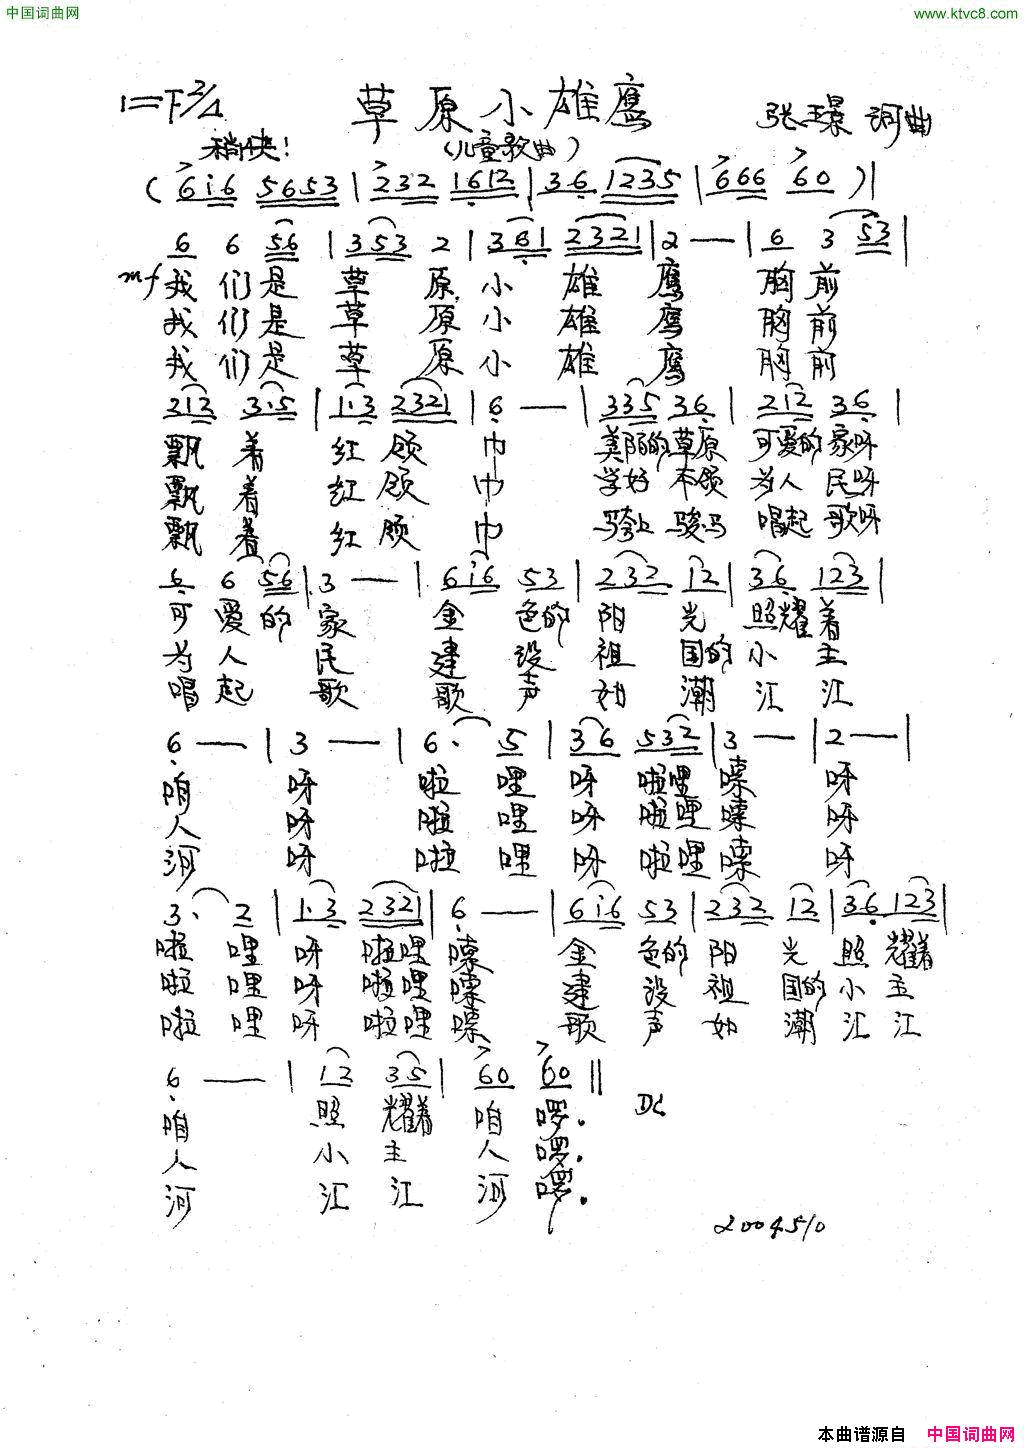 中国词曲网
www.ktvc8.com
1=F 2/4 草原小雄鹰 张玉璟 词曲
稍快! (儿童歌曲)
( 6i6 5653 | 232 1612 | 36 1235 | 666 60 ) |
6 6 56 | 353 2 | 361 2321 | 2 — | 6 3 53 |
mf 我们是 草原 小雄鹰 胸前
我们是 草原 小雄鹰 胸前
我们是 草原 小雄鹰 胸前
212 3·5 | 1·3 2321 | 6 — | 335 36 | 212 36 |
飘着 红领巾 美丽的草原 可爱的家呀
飘着 红领巾 学好本领 为人民呀
飘着 红领巾 骑上骏马 唱起歌呀
6 6 56 | 3 — | 6i6 53 | 232 12 | 36 123 |
可爱的 家 金色的 阳光 照耀着
为人 民 建设 祖国的 小主
唱起 歌 歌声 如潮 汇江
6 — | 3 — | 6· 5 | 36 532 | 3 — | 2 — |
咱 呀 啦哩 呀啦哩 嗦 呀
人 呀 啦哩 呀啦哩 嗦 呀
河 呀 啦哩 呀啦哩 嗦 呀
3· 2 | 1·3 2321 | 6 — | 6i6 53 | 232 12 | 36 123 |
啦哩 呀啦哩 嗦 金色的 阳光 照耀着
啦哩 呀啦哩 嗦 建设 祖国的 小主
啦哩 呀啦哩 嗦 歌声 如潮 汇江
6 — | 12 35 | 60 60 ||
咱 照耀着 咱啰. DC
人 小主 人啰.
河 汇江 河啰.
2004.5/10
本曲谱源自 中国词曲网